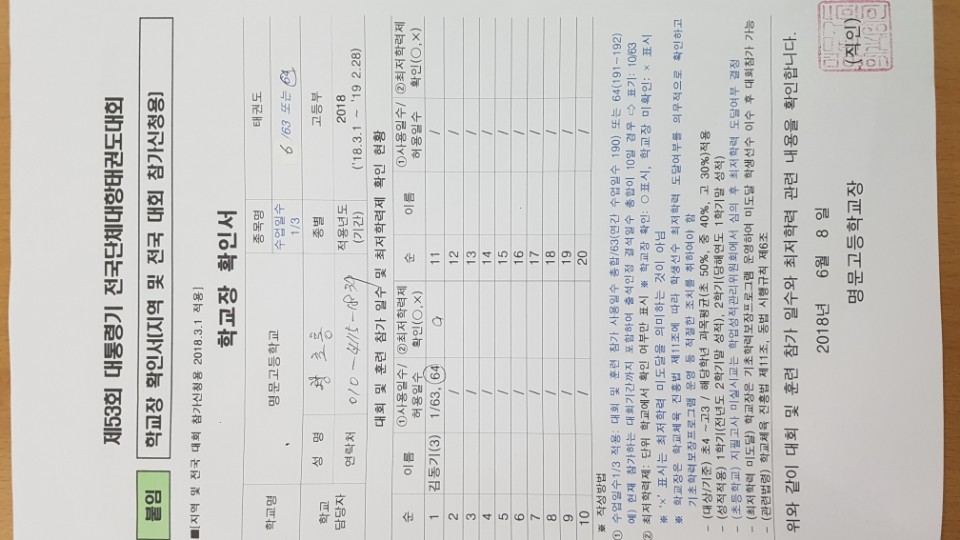 붙임
제53회 대통령기 전국단체대항태권도대회
학교장 확인서(지역 및 전국 대회 참가신청용)
■[지역 및 전국 대회 참가신청용 2018.3.1 적용]
학교장 확인서
학교명 명문고등학교 종목명 태권도
수업일수 1/3 6 /63 또는 64
학교 담당자 성 명 종별 고등부
연락처 적용년도 (기간) 2018 ('18.3.1 ~ '19 2.28)
대회 및 훈련 참가 일수 및 최저학력제 확인 현황
순 이름 ①사용일수/허용일수 ②최저학력제 확인(○,×) 순 이름 ①사용일수/허용일수 ②최저학력제 확인(○,×)
1 김동기(3) 1/63, 64 11 /
2 / 12 /
3 / 13 /
4 / 14 /
5 / 15 /
6 / 16 /
7 / 17 /
8 / 18 /
9 / 19 /
10 / 20 /
※ 작성방법
① 수업일수1/3 적용: 대회 및 훈련 참가 사용일수 총합/63(연간 수업일수 190) 또는 64(191~192)
예) 현재 참가하는 대회기간까지 포함하여 출석인정 결석일수 총합이 10일 경우 ⇨ 표기: 10/63
② 최저학력제: 단위 학교에서 확인 여부만 표시 ※ 학교장 확인: ○표시, 학교장 미확인: × 표시
※ '×' 표시는 최저학력 미도달을 의미하는 것이 아님
※ 학교장은 학교체육 진흥법 제11조에 따라 학생선수 최저학력 도달여부를 의무적으로 확인하고
기초학력보장프로그램 운영 등 적절한 조치를 취하여야 함
- (대상/기준) 초4 ~고3 / 해당학년 과목평균(초 50%, 중 40%, 고 30%)적용
- (성적적용) 1학기(전년도 2학기말 성적), 2학기(당해연도 1학기말 성적)
- (초등학교) 지필고사 미실시교는 학업성적관리위원회에서 심의 후 최저학력 도달여부 결정
- (최저학력 미도달) 학교장은 기초학력보장프로그램 운영하여 미도달 학생선수 이수 후 대회참가 가능
- (관련법령) 학교체육 진흥법 제11조, 동법 시행규칙 제6조
위와 같이 대회 및 훈련 참가 일수와 최저학력 관련 내용을 확인합니다.
2018년 6월 8일
명문고등학교장 (직인)